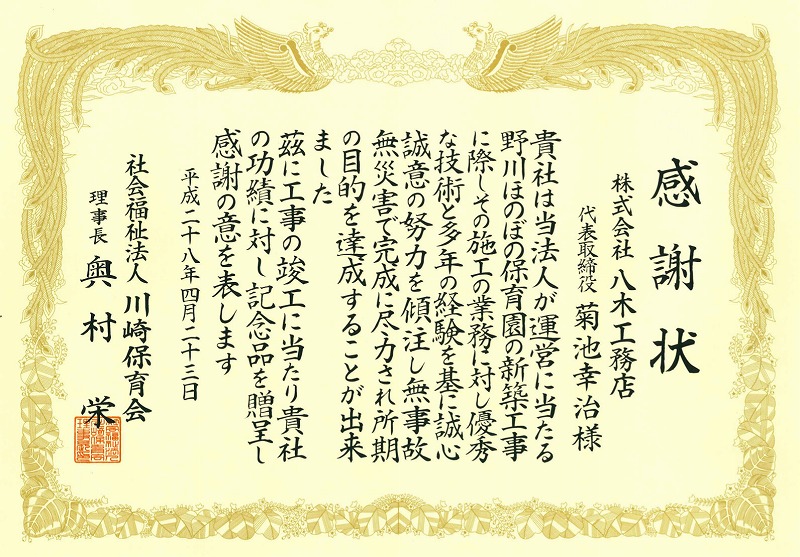 感謝状
株式会社 八木工務店
代表取締役 菊池幸治様
貴社は当法人が運営に当たる
野川ほのぼの保育園の新築工事
に際しその施工の業務に対し優秀
な技術と多年の経験を基に誠心
誠意の努力を傾注し無事故
無災害で完成に尽力され所期
の目的を達成することが出来
ました
茲に工事の竣工に当たり貴社
の功績に対し記念品を贈呈し
感謝の意を表します
平成二十八年四月二十三日
社会福祉法人 川崎保育会
理事長 奥村 栄